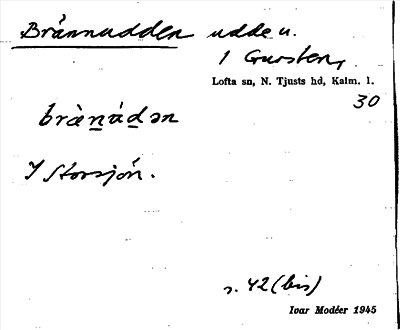 Brännudden udde u.
1 Gursten,
Lofta sn, N. Tjusts hd, Kalm. l.
30
bràn̲ád̲ən
I Storsjön.
s. 42 (bis)
Ivar Modéer 1945